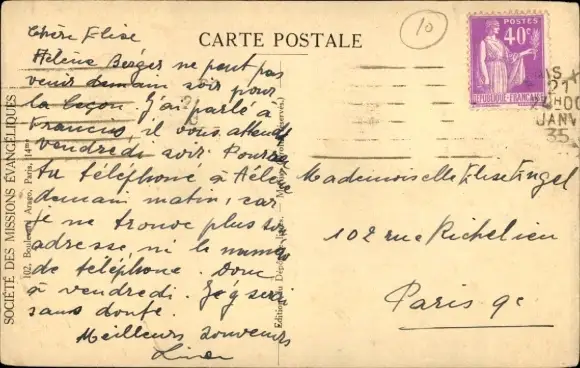 CARTE POSTALE
10
POSTES
40c
RÉPUBLIQUE FRANÇAISE
21
JANV
35
Chère Elise
Hélène Berger ne peut pas
venir demain soir pour
la leçon. J'ai parlé à
Francis, il vous attend
vendredi soir.
tu téléphoné à Hélène
demain matin, car
je ne trouve plus son
adresse, ni le numéro
de téléphone. Donc
à vendredi. J'y serai
sans doute.
Meilleurs souvenirs
Mademoiselle Elise Engel
102 rue Richelieu
Paris 9e
SOCIÉTÉ DES MISSIONS ÉVANGÉLIQUES
102, Boulevard Arago, Paris, 14me